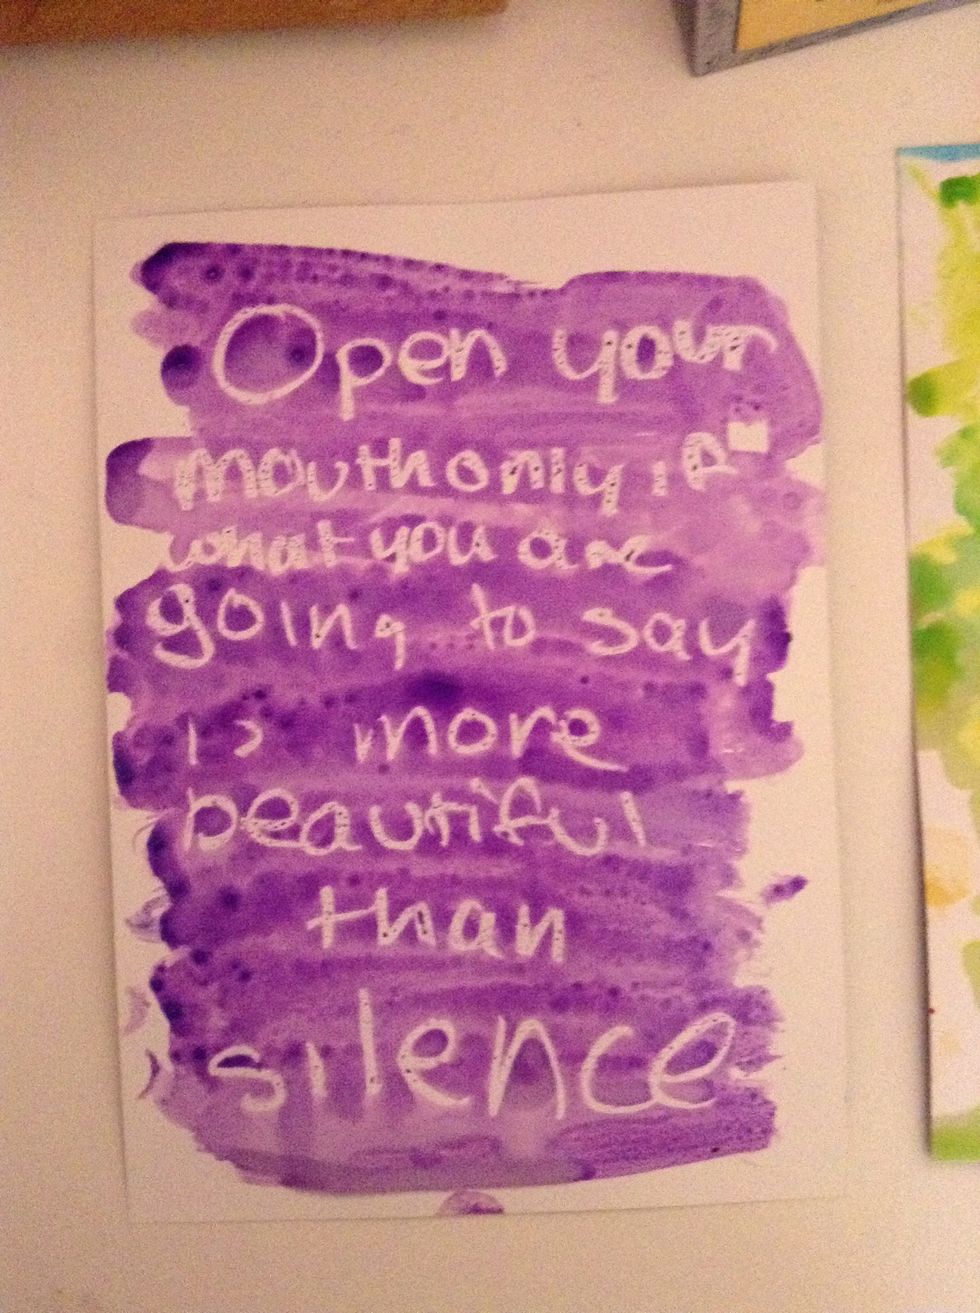 Open your
mouth only if
what you are
going to say
is more
beautiful
than
silence